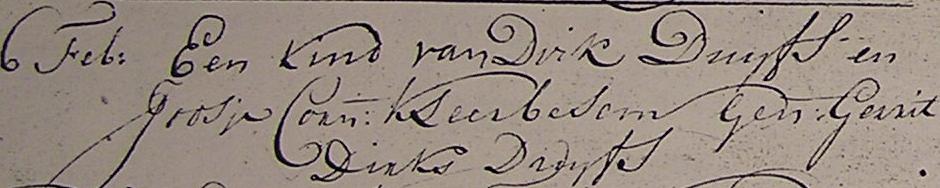 6 Feb: Een kind van Dirk Duyfs en
Joosje Corn: Kleerbesem Gen: Gerrit
Dirks Duyfs